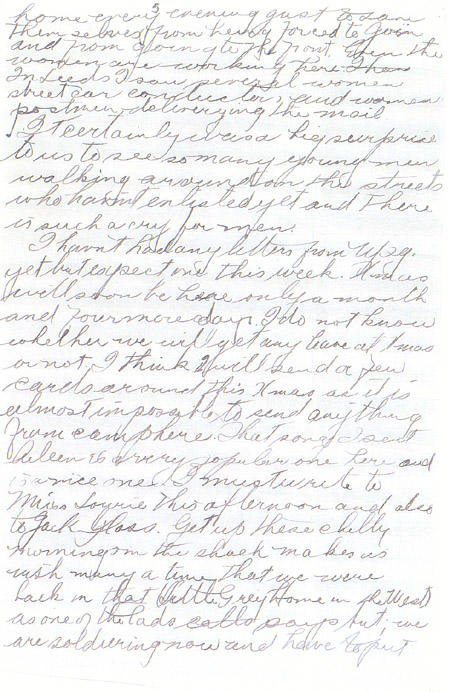 home every 3 evening just to save
them selves from being forced to join
and from going to the front. Even the
women are working here. Then
In Leeds I saw several women
street car conductors, and women
postmen delivering the mail
It certainly was a big surprise
to us to see so many young men
walking around on the streets
who havnt enlisted yet and there
is such a cry for men.
I havnt had any letters from Wpg.
yet but expect one this week. Xmas
will soon be here only a month
and four more days. I do not know
whether we will get any leave at Xmas
or not. I think I will send a few
cards around this Xmas as it is
almost impossible to send anything
from camp here. That song I sent
Aileen is a very popular one here and
is a nice one. I must write to
Miss this afternoon and also
to Jack Glass. Get up these chilly
mornings in the shack makes us
wish many a time that we were
back in that little Grey Home in the West
as one of the lads calls says but, we
are soldiering now and have to put